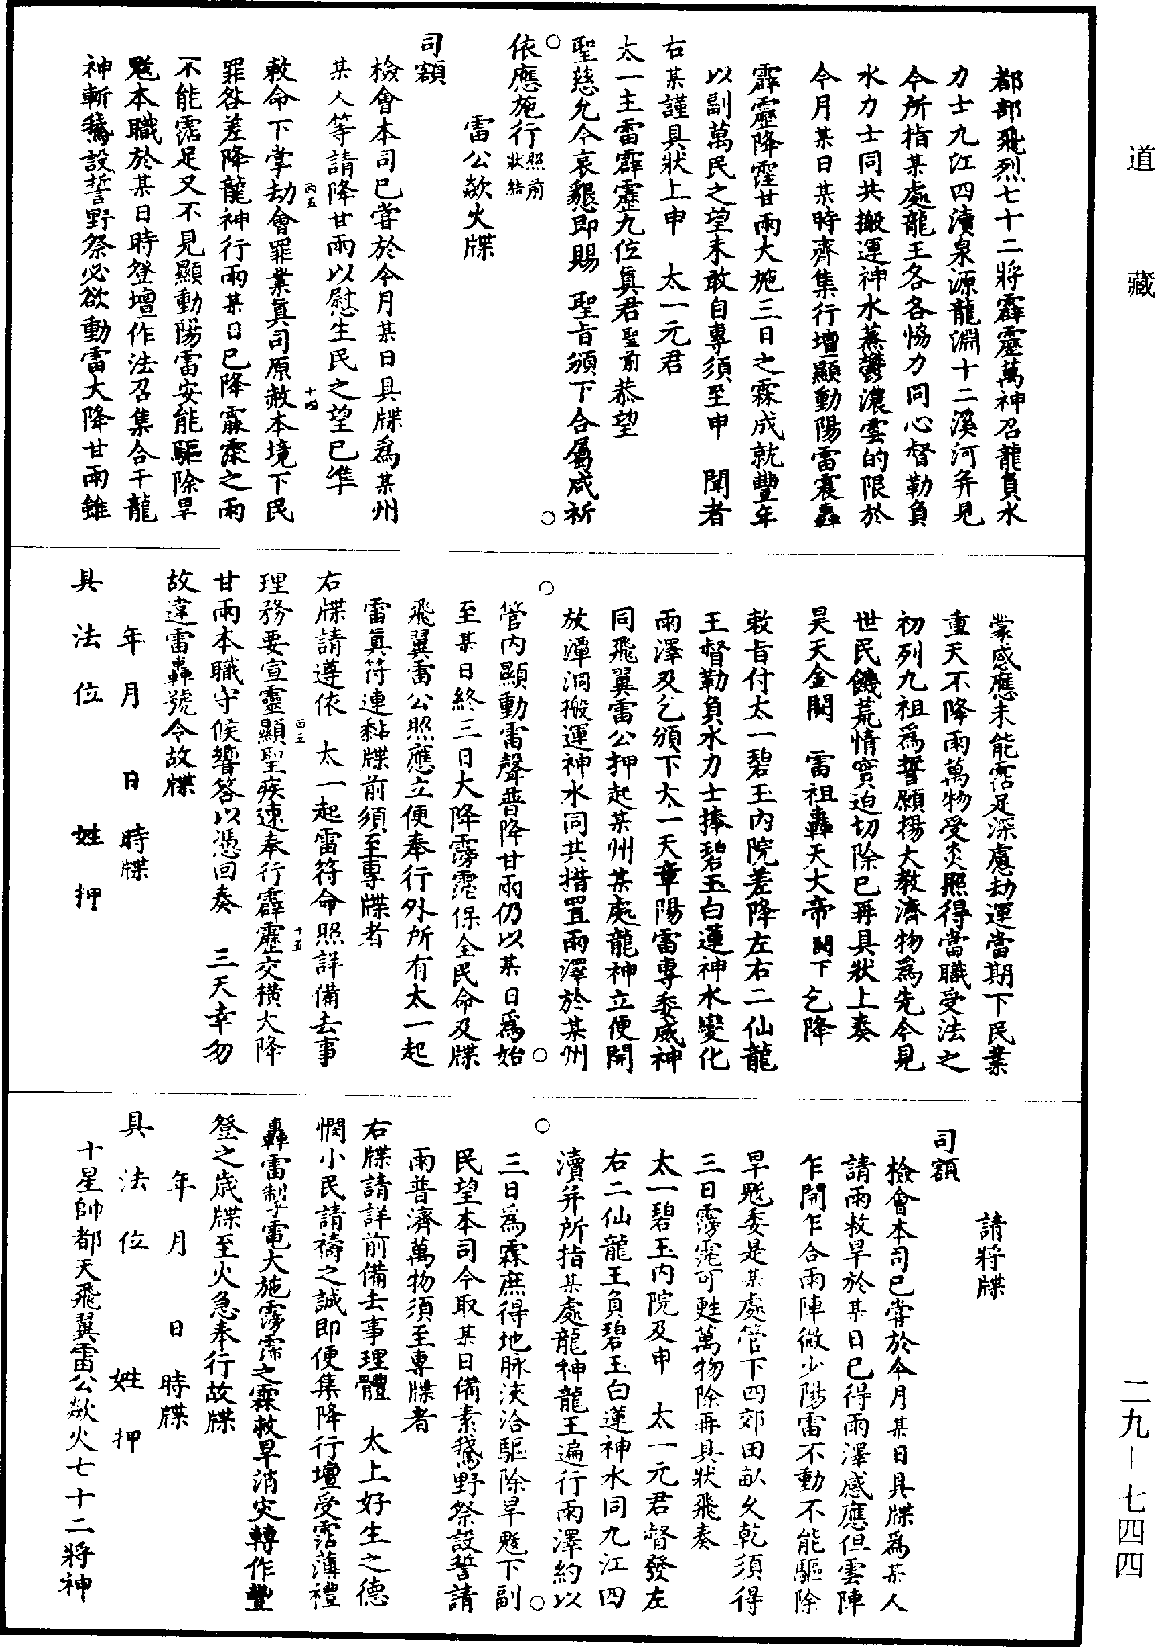 道藏
都部飛烈七十二將霹靂萬神召龍負水
力士九江四瀆泉源龍淵十二溪河并見
今所指某處龍王各各恊力同心督勒負
水力士同共搬運神水蒸鬱濃雲的限於
今月某日某時齊集行壇顯動陽雷震轟
霹靂降霔甘雨大施三日之霖成就豐年
以副萬民之望未敢自專須至申　聞者
右某謹具狀上申　太一元君
太一主雷霹靂九位真君聖前恭望
聖慈允今哀懇即賜　聖旨頒下合屬咸祈
依應施行照前狀結
雷公欻火牒
司額
檢會本司已嘗於今月某日具牒爲某州
某人等請降甘雨以慰生民之望已準
敕命下掌劫會罪業真司原赦本境下民
罪咎差降龍神行雨某日已降霢霂之雨
不能霑足又不見顯動陽雷安能驅除旱
魃本職於某日時登壇作法召集合干龍
神斬鵞設誓野祭必欲動雷大降甘雨雖
丙五
十四
蒙感應未能霑足深慮劫運當期下民業
重天不降雨萬物受炎照得當職受法之
初列九祖爲誓願揚大教濟物爲先今見
世民饑荒情實迫切除已再具狀上奏
昊天金闕　雷祖轟天大帝闕下乞降
敕旨付太一碧玉內院差降左右二仙龍
王督勒負水力士捧碧玉白蓮神水變化
雨澤及乞頒下太一天章陽雷專委威神
同飛翼雷公押起某州某處龍神立便開
放潭洞搬運神水同共措置雨澤於某州
管內顯動雷聲普降甘雨仍以某日爲始
至某日終三日大降霶霔保全民命及牒
飛翼雷公照應立便奉行外所有太一起
雷真符連黏牒前須至專牒者
右牒請遵依　太一起雷符命照詳備去事
理務要宣靈顯聖疾速奉行霹靂交橫大降
甘雨本職守候響答以憑回奏　三天幸勿
故違雷轟號令故牒
年　月　日　時牒
具　法　位　姓　押
丙五
十五
請將牒
司額
檢會本司已嘗於今月某日具牒爲某人
請雨救旱於某日已得雨澤感應但雲陣
乍開乍合雨陣微少陽雷不動不能驅除
旱魃委是某處管下四郊田畝久乾須得
三日霶霔可甦萬物除再具狀飛奏
太一碧玉內院及申　太一元君督發左
右二仙龍王負碧玉白蓮神水同九江四
瀆并所指某處龍神龍王遍行雨澤約以
三日爲霖庶得地脉浹洽驅除旱魃下副
民望本司今取某日備素鵞野祭設誓請
雨普濟萬物須至專牒者
右牒請詳前備去事理體　太上好生之德
憫小民請禱之誠即便集降行壇受霑薄禮
轟雷掣電大施霶霈之霖救旱消灾轉作豐
登之歲牒至火急奉行故牒
年　月　日　時牒
具　法　位　姓　押
十星帥都天飛翼雷公欻火七十二將神
二九－七四四